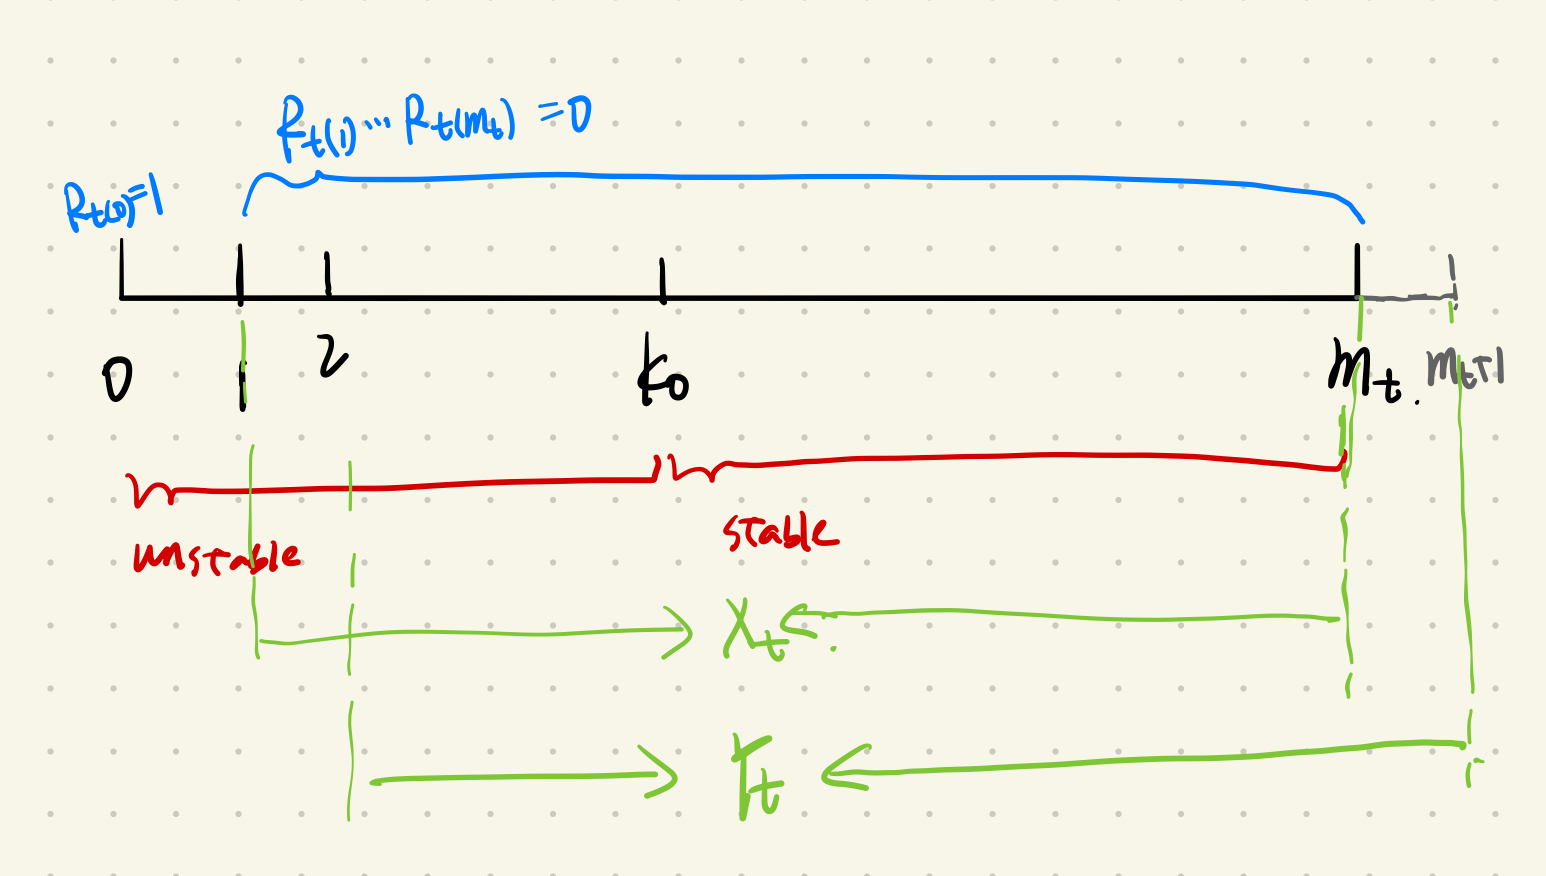 R_t(1) ... R_t(m_t) = 0
R_t(0) = 1
0 1 2 k_0 m_t. m_t+1
unstable stable
X_t.
r_t